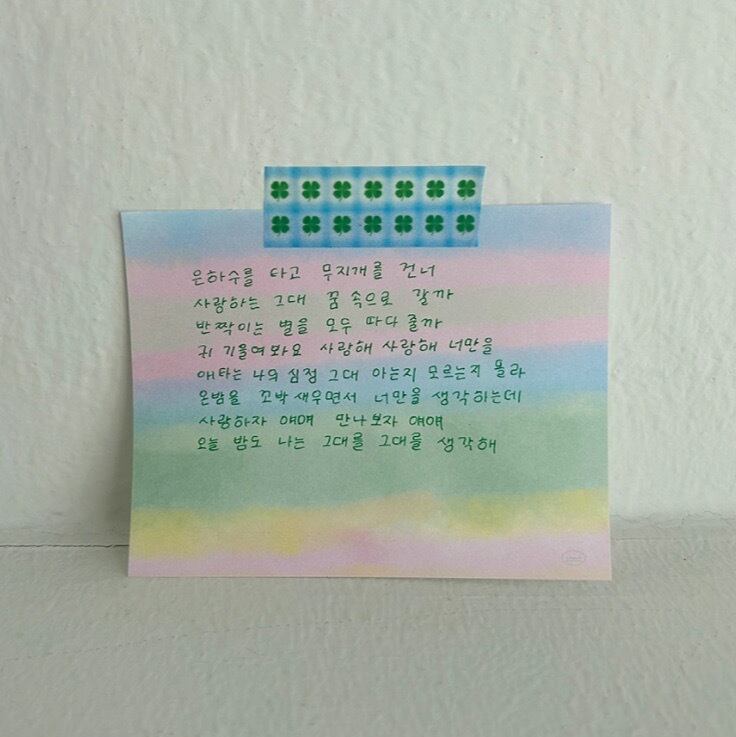 은하수를 타고 무지개를 건너
사랑하는 그대 꿈 속으로 갈까
반짝이는 별을 모두 따다 줄까
귀 기울여봐요 사랑해 사랑해 너만을
애타는 나의 심정 그대 아는지 모르는지 몰라
온밤을 꼬박 새우면서 너만을 생각하는데
사랑하자 얘얘 만나보자 얘얘
오늘 밤도 나는 그대를 그대를 생각해